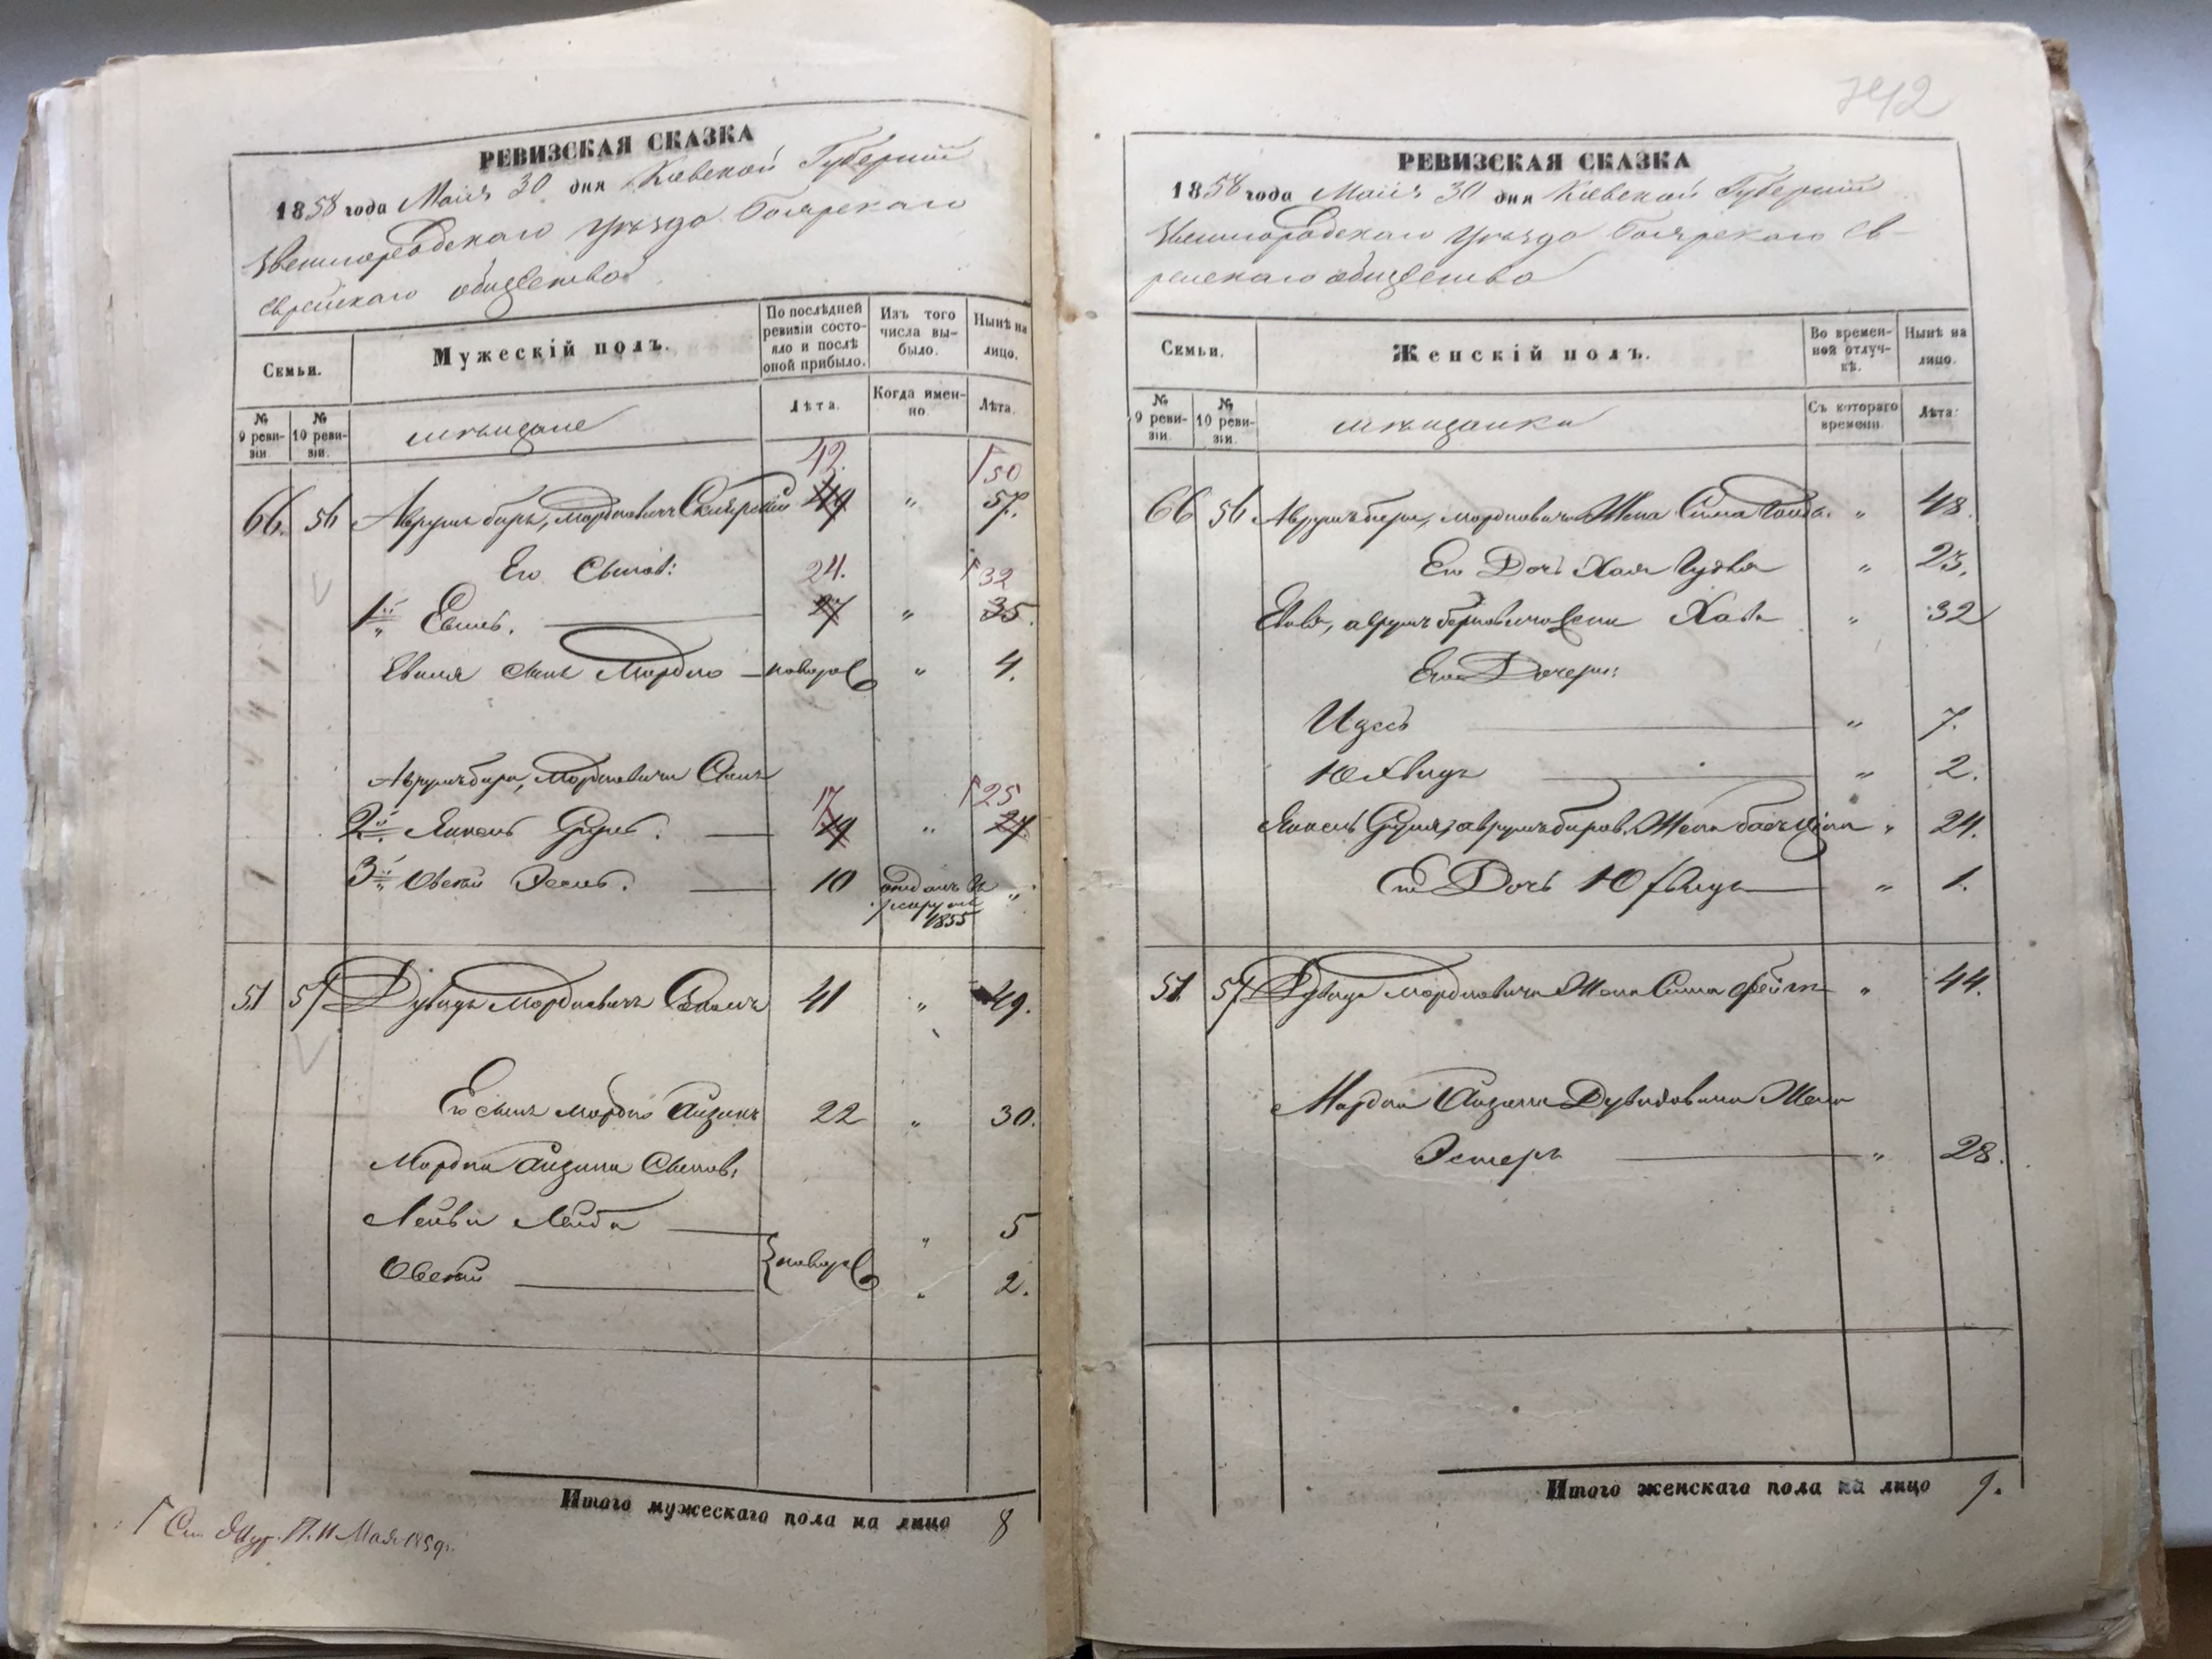 РЕВИЗСКАЯ СКАЗКА
1858 года Маія 30 дня Кіевской Губерніи
Звенигородскаго Уѣзда Боярскаго
Еврейскаго общества
Семьи.
Мужескій полъ.
По послѣдней ревизіи состояло и послѣ оной прибыло.
Изъ того числа выбыло.
Нынѣ на лицо.
№ 9 ревизіи.
№ 10 ревизіи.
мѣщане
Лѣта.
Когда именно.
Лѣта.
42. 50
66. 56 Аврумъ беръ, Мордковичъ 49 " 57.
Его Сынов: 24. 32
1й 27 " 35.
сынъ Мордко — новорож " 4.
Аврумъ бера, Мордковича Сынъ
17 25
2й Янкель — 19 " 27
3й Овсей — 10 отданъ въ рекруты 1855 "
51 57 Дувидъ Мордковичъ 41 " 49.
Его сынъ Мордко Айзикъ 22 " 30.
Мордка Айзика Сынов:
Лейба — " 5
Овсей — новорож " 2.
Итого мужескаго пола на лицо 8
Маія 1859 г.
742
РЕВИЗСКАЯ СКАЗКА
1858 года Маія 30 дня Кіевской Губерніи
Звенигородскаго Уѣзда Боярскаго Ев-
рейскаго общества
Семьи.
Женскій полъ.
Во временной отлучкѣ.
Нынѣ на лицо.
№ 9 ревизіи.
№ 10 ревизіи.
мѣщанки
Съ котораго времени.
Лѣта.
66 56 Аврумъ бера, Мордковича Жена Сима " 48.
Его Дочь Хая " 23.
Жена Хава " 32
Его Дочери:
Идесъ — " 7.
Юхвидъ — " 2.
Янкель Жена " 24.
Его Дочь Юхвидъ — " 1.
51. 57 Дувида Мордковича Жена Сима Фейга " 44.
Мордка Айзика Дувидовича Жена
Эстеръ — " 28.
Итого женскаго пола на лицо 9.